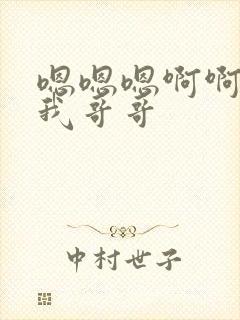 嗯嗯嗯啊啊
我哥哥
中村世子